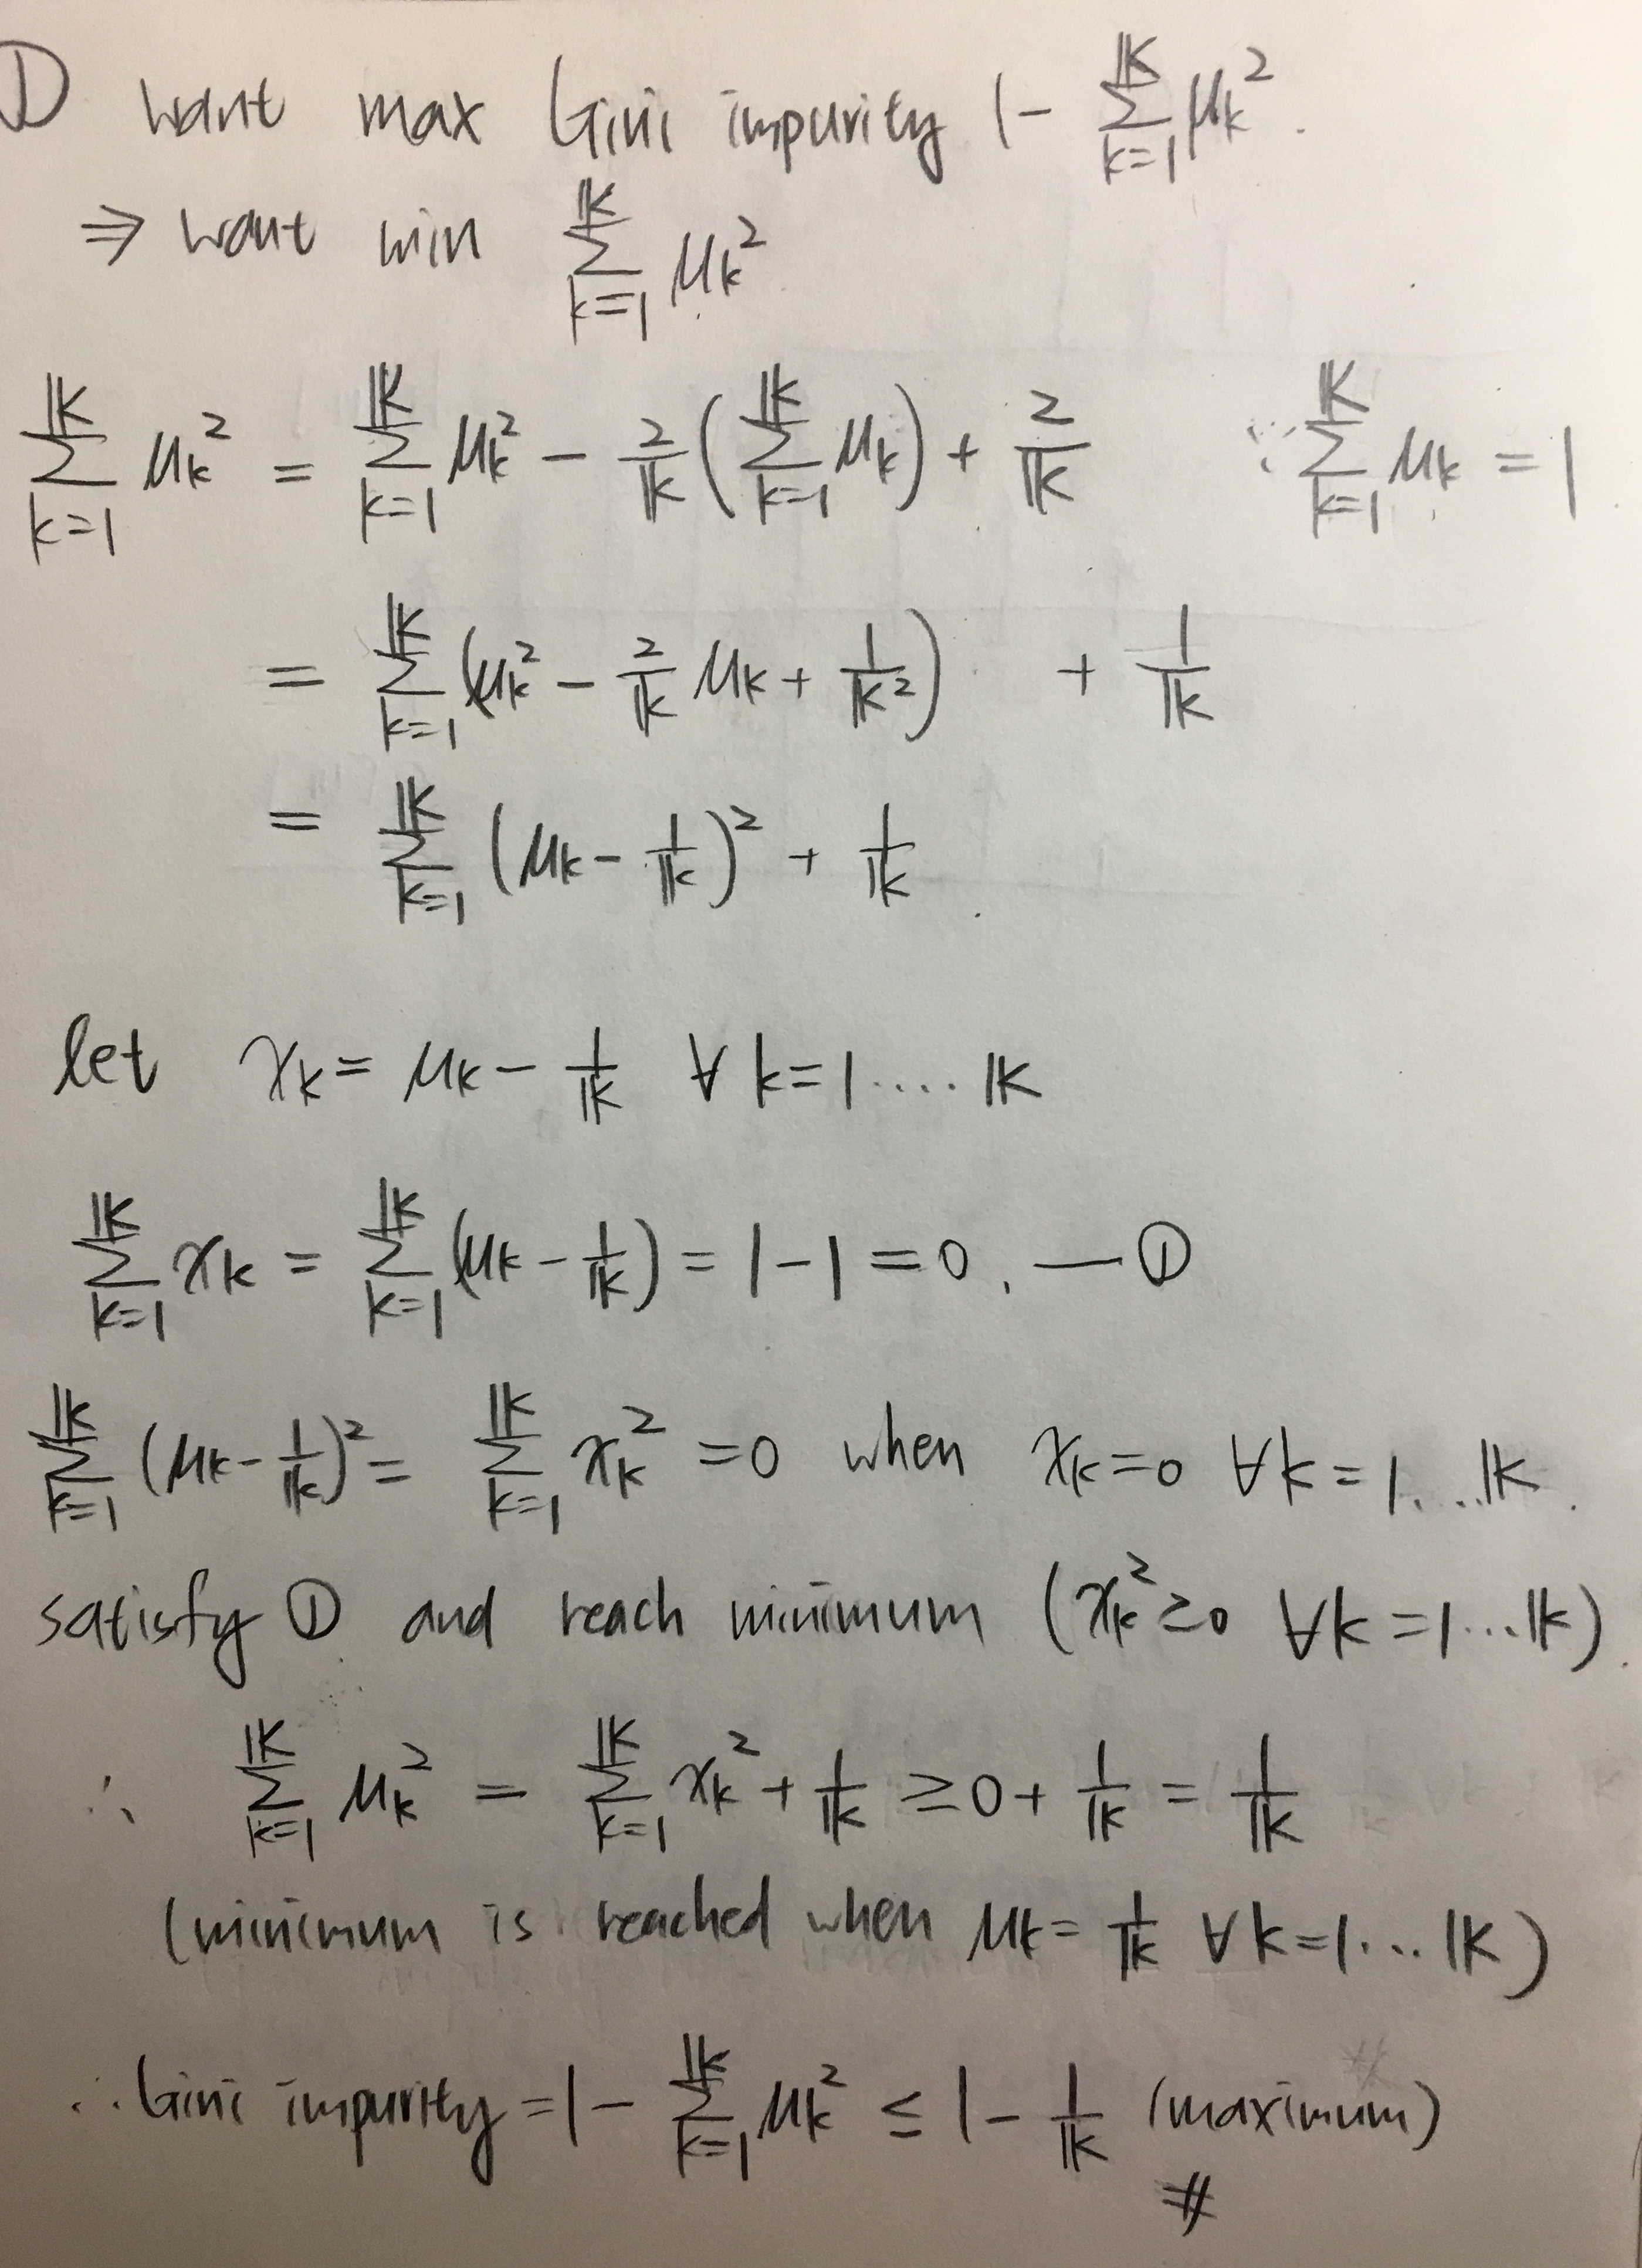 ① want max Gini impurity 1 - \sum_{k=1}^{K} μ_k^2 .
⇒ want min \sum_{k=1}^{K} μ_k^2
\sum_{k=1}^{K} μ_k^2 = \sum_{k=1}^{K} μ_k^2 - \frac{2}{K} ( \sum_{k=1}^{K} μ_k ) + \frac{2}{K} ∵ \sum_{k=1}^{K} μ_k = 1
= \sum_{k=1}^{K} ( μ_k^2 - \frac{2}{K} μ_k + \frac{1}{K^2} ) + \frac{1}{K}
= \sum_{k=1}^{K} ( μ_k - \frac{1}{K} )^2 + \frac{1}{K}
let x_k = μ_k - \frac{1}{K} ∀ k = 1 .... K
\sum_{k=1}^{K} x_k = \sum_{k=1}^{K} ( μ_k - \frac{1}{K} ) = 1 - 1 = 0 . — ①
\sum_{k=1}^{K} ( μ_k - \frac{1}{K} )^2 = \sum_{k=1}^{K} x_k^2 = 0 when x_k = 0 ∀ k = 1 ... K .
satisfy ① and reach minimum ( x_k^2 ≥ 0 ∀ k = 1 ... K ) .
∴ \sum_{k=1}^{K} μ_k^2 = \sum_{k=1}^{K} x_k^2 + \frac{1}{K} ≥ 0 + \frac{1}{K} = \frac{1}{K}
( minimum is reached when μ_k = \frac{1}{K} ∀ k = 1 ... K )
∴ Gini impurity = 1 - \sum_{k=1}^{K} μ_k^2 ≤ 1 - \frac{1}{K} (maximum)
#